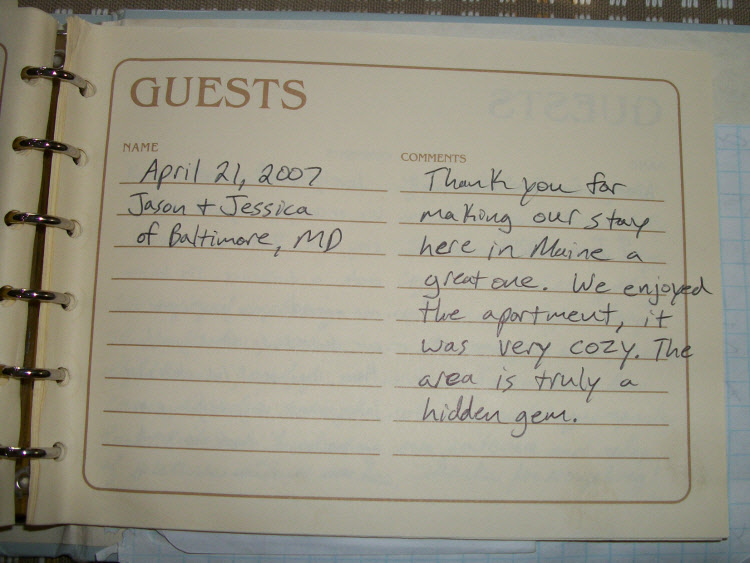 GUESTS
NAME
April 21, 2007
Jason + Jessica
of Baltimore, MD
COMMENTS
Thank you for
making our stay
here in Maine a
great one. We enjoyed
the apartment, it
was very cozy. The
area is truly a
hidden gem.